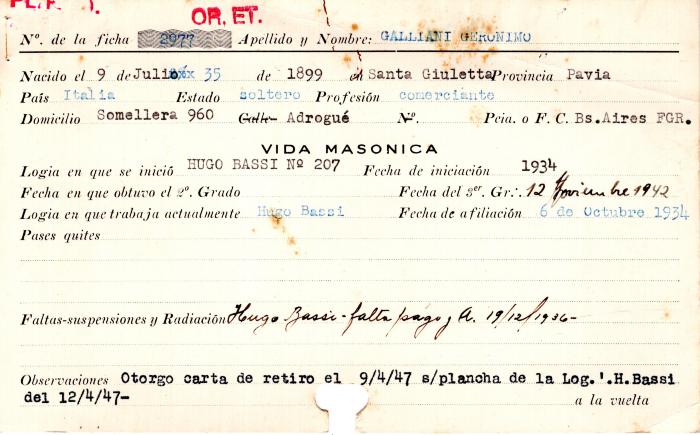 OR. ET.
Nº. de la ficha 2977 Apellido y Nombre: GALLIANI GERONIMO
Nacido el 9 de Julio xxx 35 de 1899 el Santa Giuletta Provincia Pavia
País Italia Estado soltero Profesión comerciante
Domicilio Somellera 960 Calle Adrogué Nº. Pcia. o F. C. Bs.Aires FGR.
VIDA MASONICA
Logia en que se inició HUGO BASSI Nº 207 Fecha de iniciación 1934
Fecha en que obtuvo el 2º. Grado Fecha del 3er. Gr∴ 12 Noviembre 1942
Logia en que trabaja actualmente Hugo Bassi Fecha de afiliación 6 de Octubre 1934
Pases quites
Faltas-suspensiones y Radiación Hugo Bassi - falta pago y A. 19/12/1936-
Observaciones Otorgo carta de retiro el 9/4/47 s/plancha de la Log.'.H.Bassi
del 12/4/47- a la vuelta